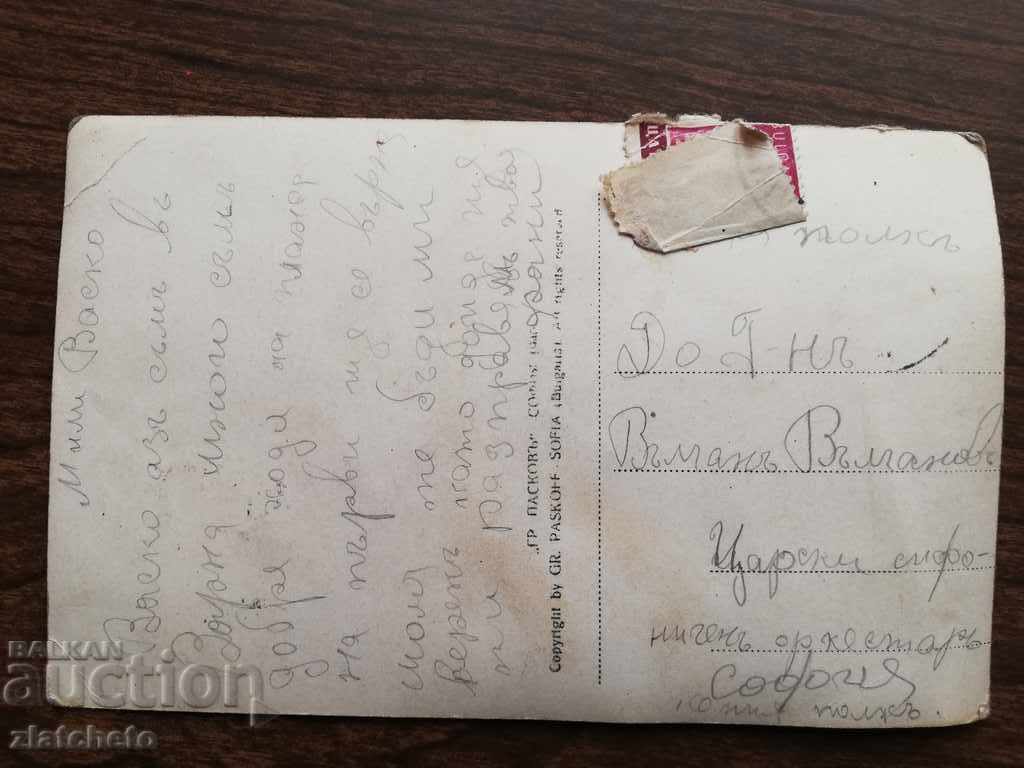 Мили Васко
Васко азъ съмъ въ
Варна много съмъ
добря ходя на плажа
на първи ня се върня
моля те бъди ми
веренъ като дойдя ня
ти разправямъ твоя
„ГР ПАСКОВЪ" СОФИЯ
Copyright by GR. PASKOFF - SOFIA (Bulgaria). All rights reserved
полкъ
До Г-нъ
Вълчанъ Вълчановъ
Царски симфо-
ниченъ оркестъръ
София
полкъ.
BALKAN
auction
zlatcheto